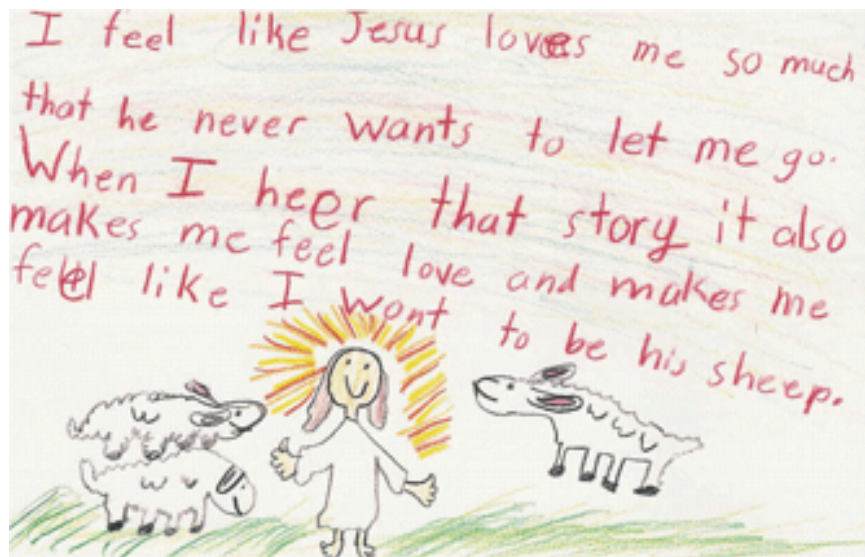 I feel like Jesus loves me so much
that he never wants to let me go.
When I heer that story it also
makes me feel love and makes me
feel like I wont to be his sheep.